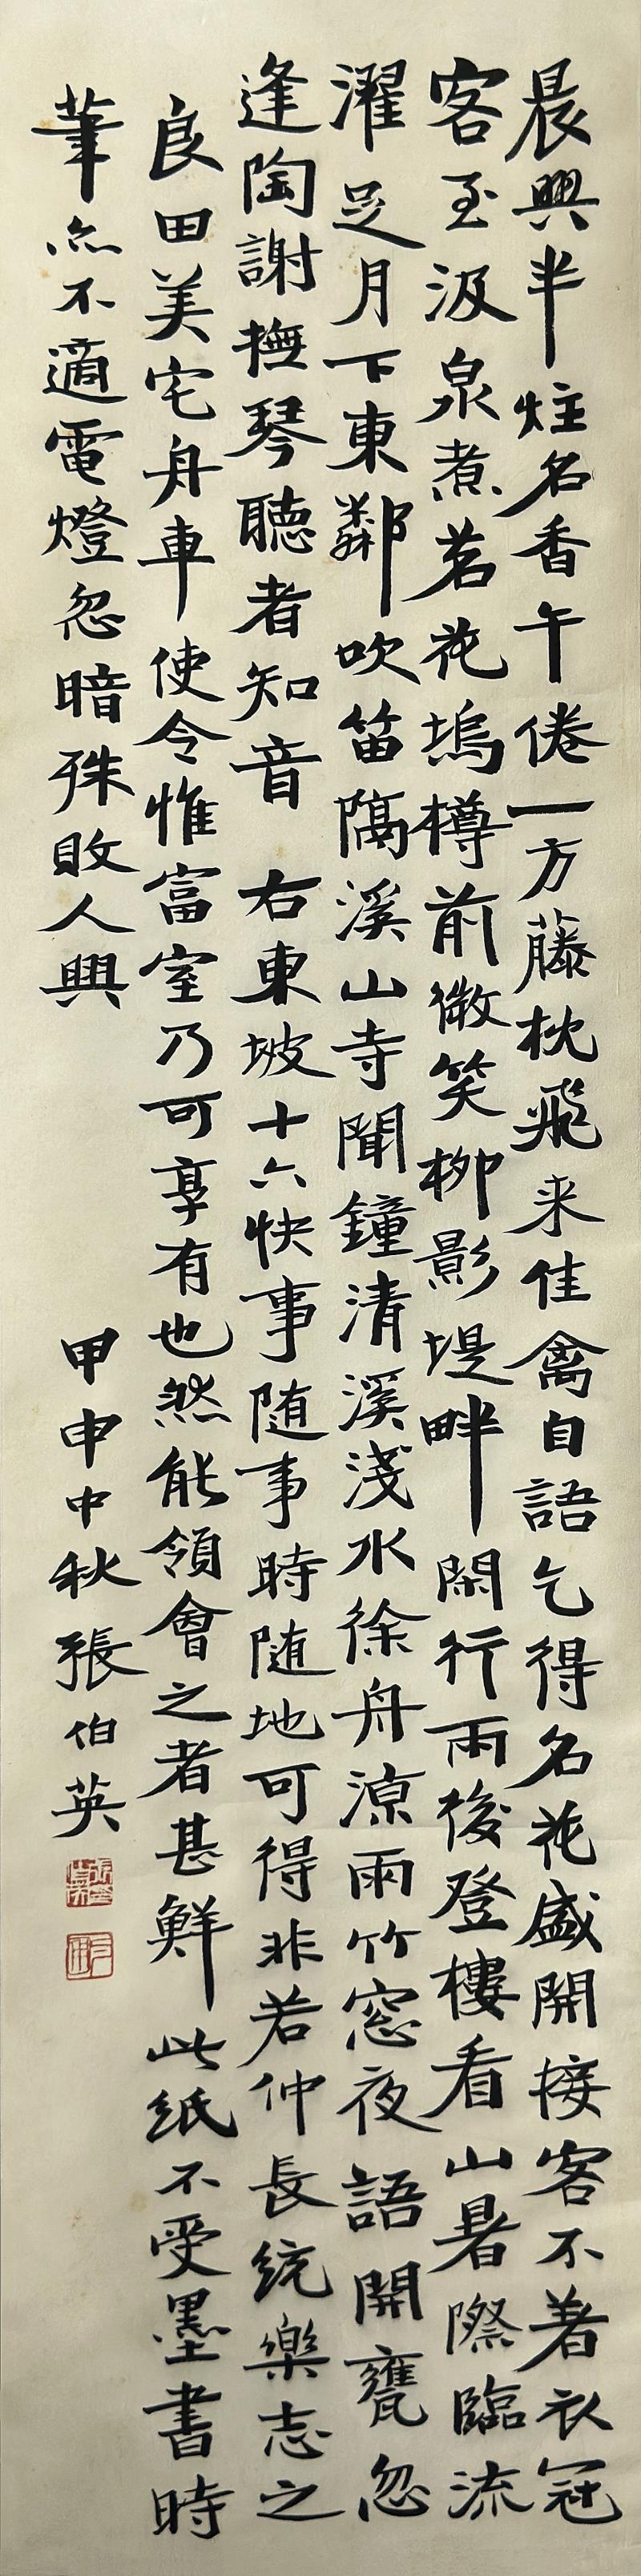 晨興半炷名香午倦一方藤枕飛来佳禽自語乞得名花盛開接客不著衣冠
客至汲泉煮茗花塢樽前微笑柳影堤畔閑行雨後登樓看山暑際臨流
濯足月下東鄰吹笛隔溪山寺聞鐘清溪淺水徐舟涼雨竹窓夜語開甕忽
逢陶謝撫琴聽者知音 右東坡十六快事随事時随地可得非若仲長統樂志之
良田美宅舟車使令惟富室乃可享有也然能領會之者甚鮮 此紙不受墨書時
筆亦不適電燈忽暗殊敗人興
甲申中秋張伯英